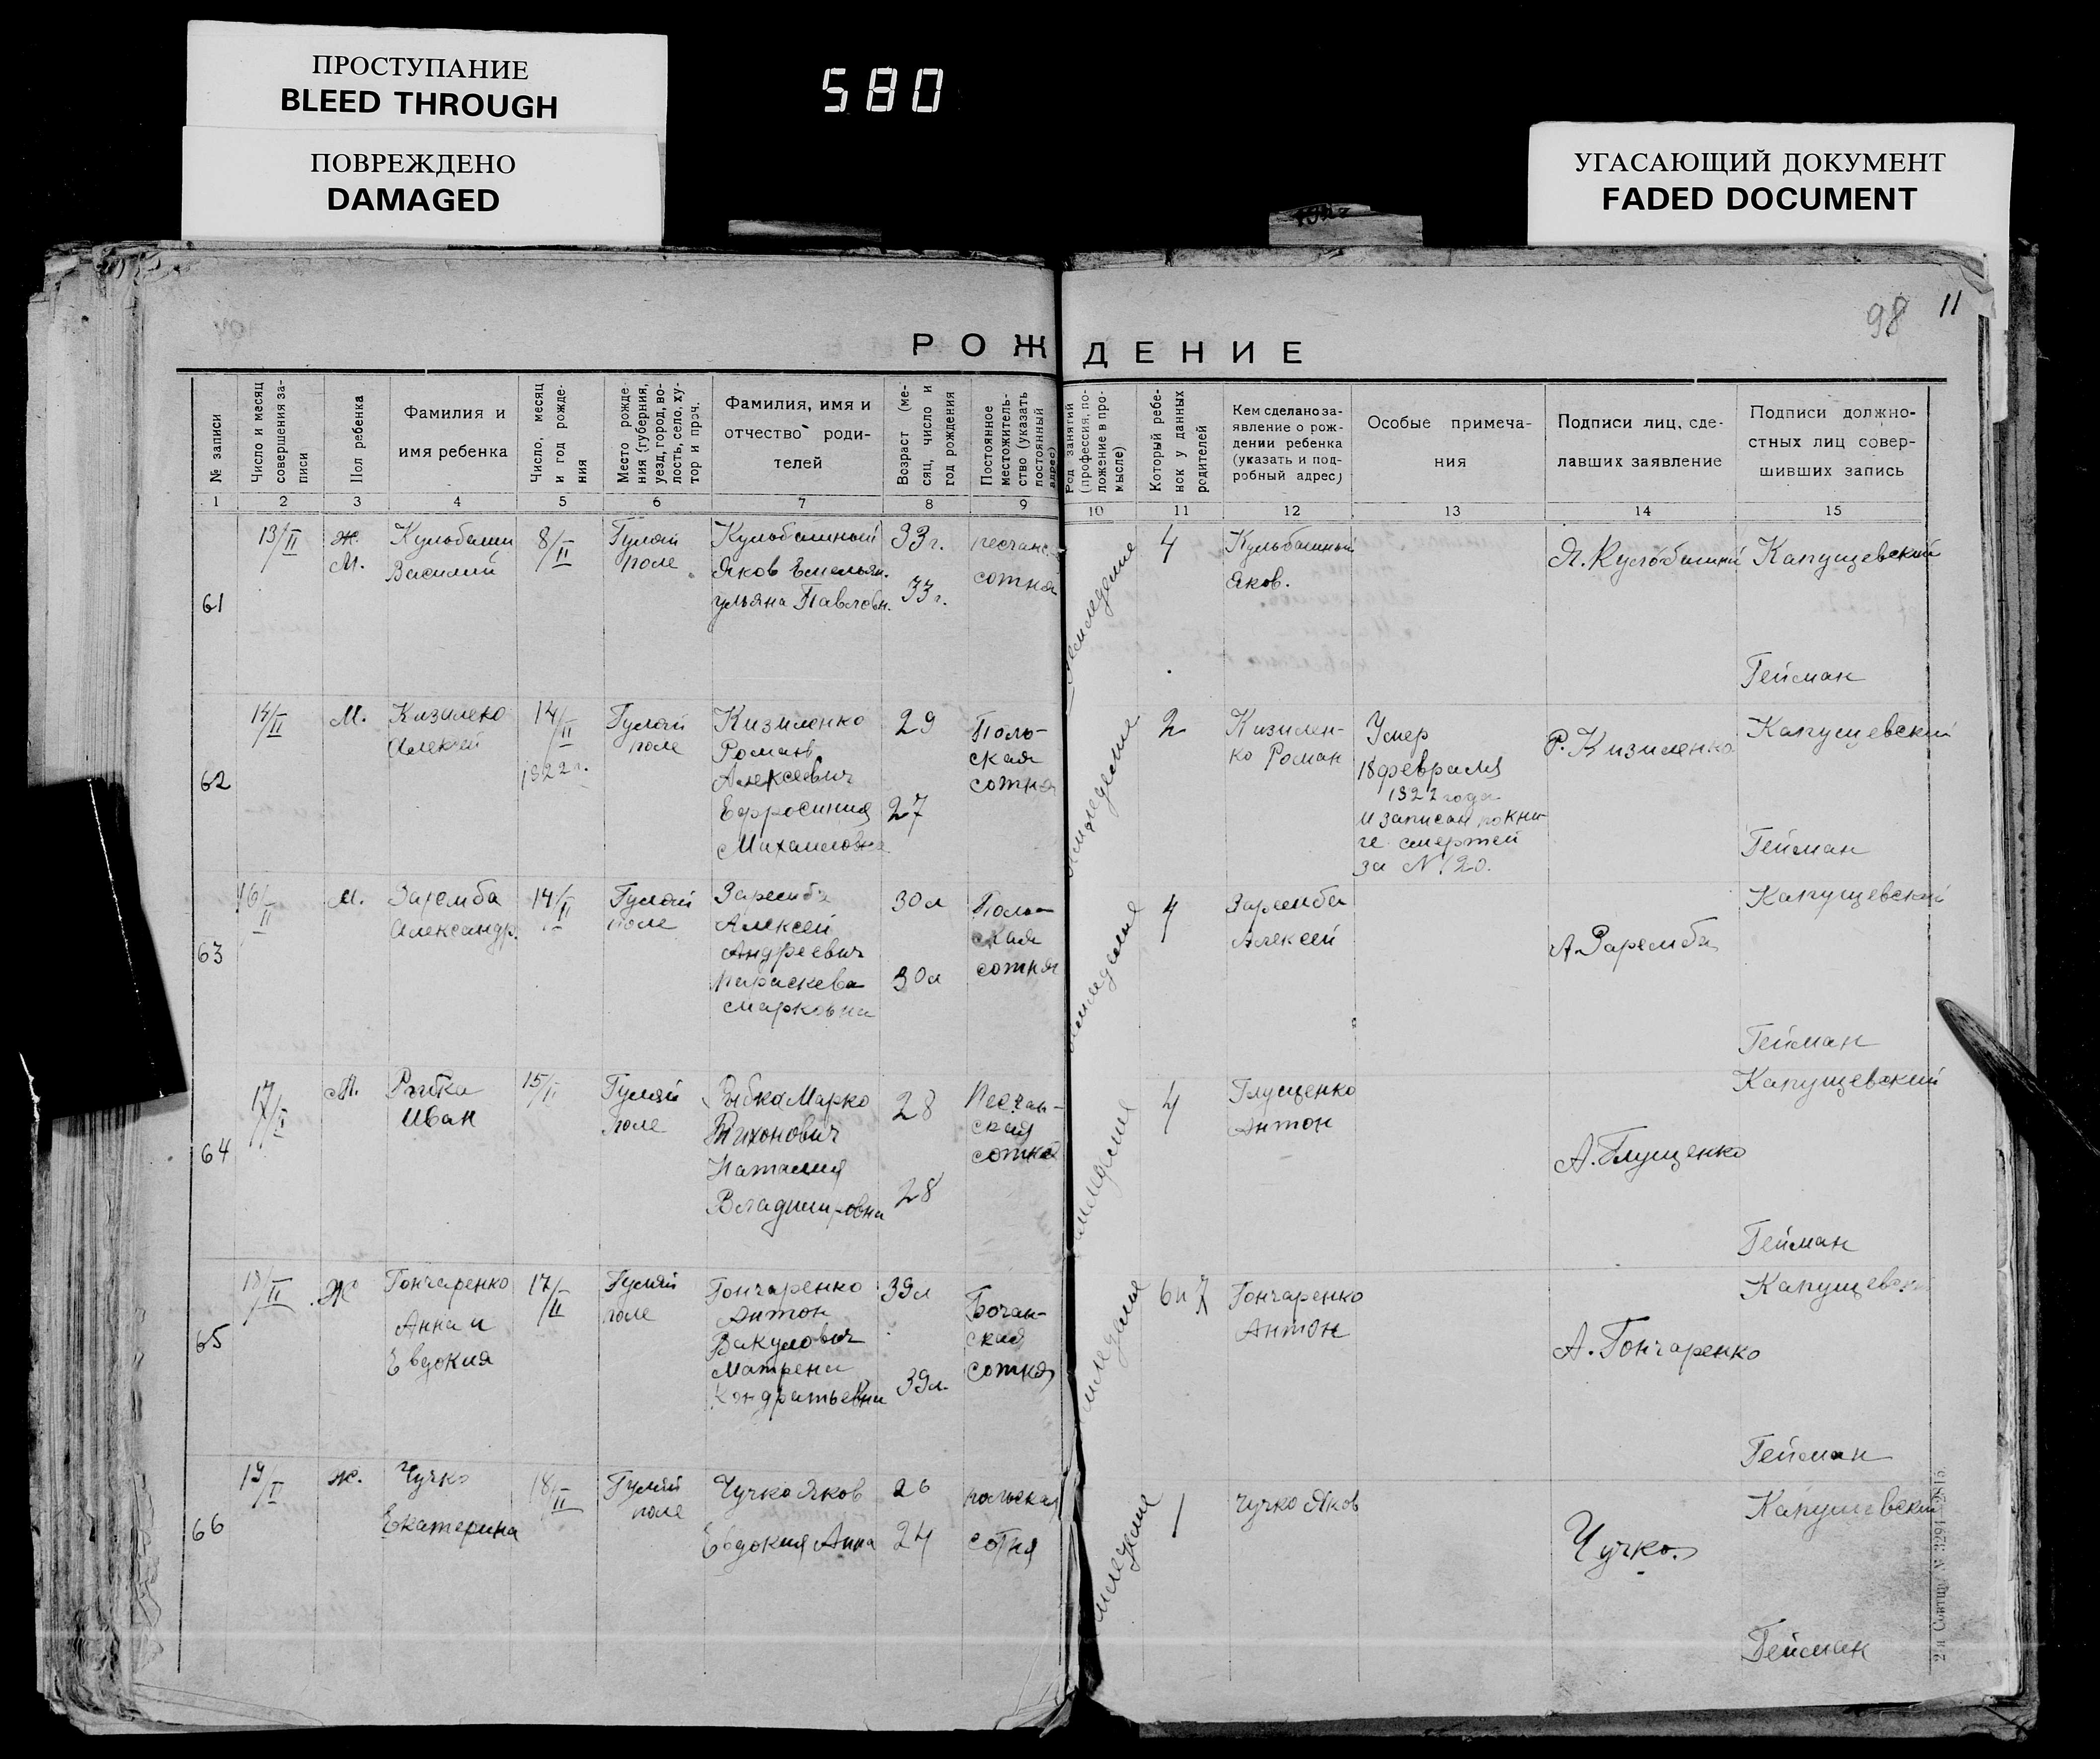 ПРОСТУПАНИЕ
BLEED THROUGH
ПОВРЕЖДЕНО
DAMAGED
580
УГАСАЮЩИЙ ДОКУМЕНТ
FADED DOCUMENT
98
11
РОЖДЕНИЕ
№ записи
Число и месяц
совершения за-
писи
Пол ребенка
Фамилия и
имя ребенка
Число, месяц
и год рожде-
ния
Место рожде-
ния (губерния,
уезд, город, во-
лость, село, ху-
тор и проч.
Фамилия, имя и
отчество роди-
телей
Возраст (ме-
сяц, число и
год рождения
Постоянное
местожитель-
ство (указать
постоянный
адрес)
Род занятий
(профессия, по-
ложение в про-
мысле)
Который ребе-
нок у данных
родителей
Кем сделано за-
явление о рож-
дении ребенка
(указать и под-
робный адрес)
Особые примеча-
ния
Подписи лиц, сде-
лавших заявление
Подписи должно-
стных лиц совер-
шивших запись
1 2 3 4 5 6 7 8 9 10 11 12 13 14 15
61
13/II
ж.
М.
Василий
8/II
Гуляй
поле
Яков Емельян.
ульяна Павловн.
33 г.
33 г.
песчанс.
сотня
4
Яков.
Капущевский
Гейман
62
14/II
М.
Кизиленко
Алексей
14/II
1922 г.
Гуляй
поле
Кизиленко
Роман
Алексеевич
Ефросиния
Михайловна
29
27
Поль-
ская
сотня
земледелие
2
Кизилен-
ко Роман
Умер
18 февраля
1922 года
и записан по кни-
ге смертей
за № 20.
Р. Кизиленко
Капущевский
Гейман
63
16/II
М.
Заремба
Александр.
14/II
Гуляй
поле
Заремба
Алексей
Андреевич
параскева
Марковна
30 л
30 л
Поль-
ская
сотня
4
Заремба
Алексей
А Заремба
Капущевский
Гейман
64
17/II
М.
Рыбка
Иван
15/II
Гуляй
поле
Рыбка Марко
Тихонович
Наталия
Владимировна
28
28
Песчан-
ская
сотня
4
Глущенко
Антон
А. Глущенко
Капущевский
Гейман
65
18/II
Ж
Гончаренко
Анна и
Евдокия
17/II
Гуляй
поле
Гончаренко
Антон
Вакулович
Матрена
Кондратьевна
39 л
39 л.
сотня
6 и 7
Гончаренко
Антон
А. Гончаренко
Гейман
66
19/II
ж.
Чучко
Екатерина
18/II
Гуляй
поле
Чучко Яков
Евдокия Анна
26
24
польская
сотня
1
Чучко Яков
Чучко
Капущевский
Гейман